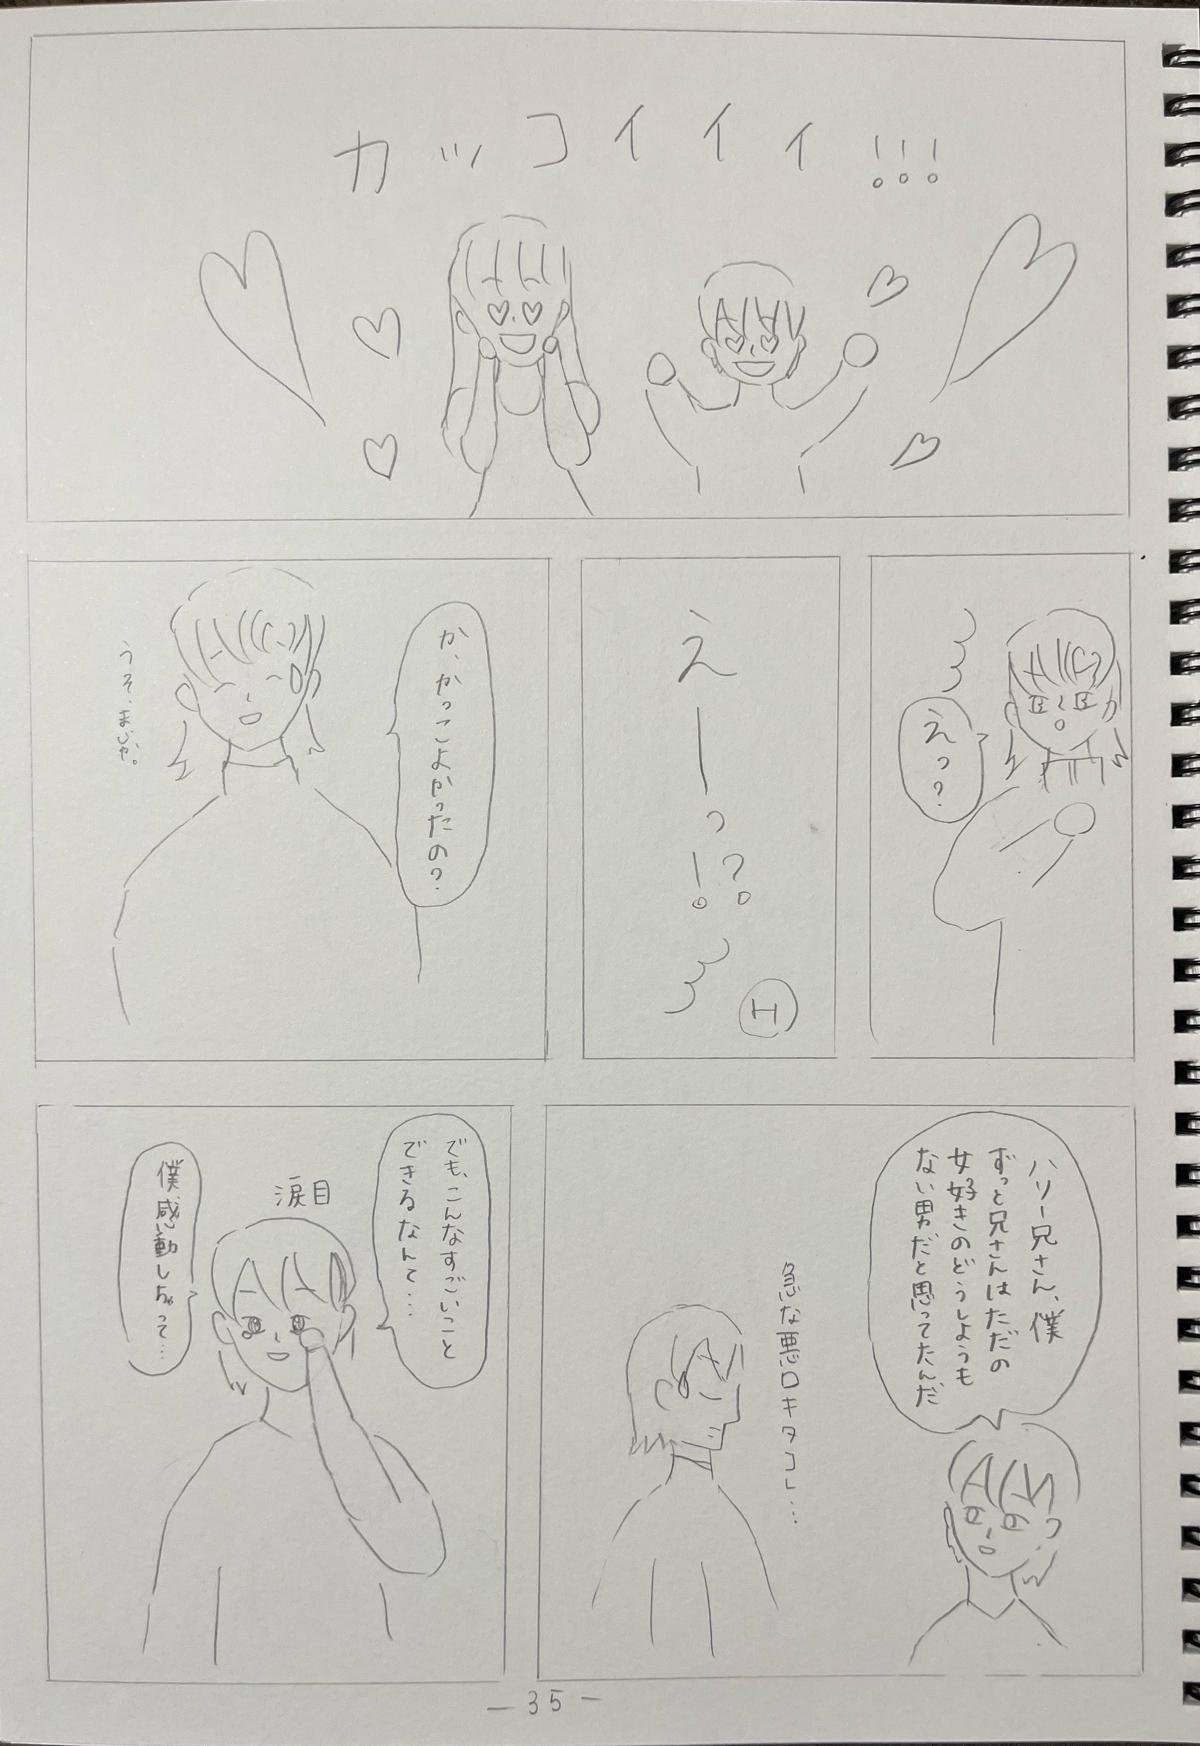 カッコイイイ!!!
えっ?
えーっ!?
H
か、かっこよかったの?
うそ、まじか。
ハリー兄さん、僕
ずっと兄さんはただの
女好きのどうしようも
ない男だと思ってたんだ
急な悪口キタコレ…
でも、こんなすごいこと
できるなんて…
涙目
僕、感動しちゃって…
-35-